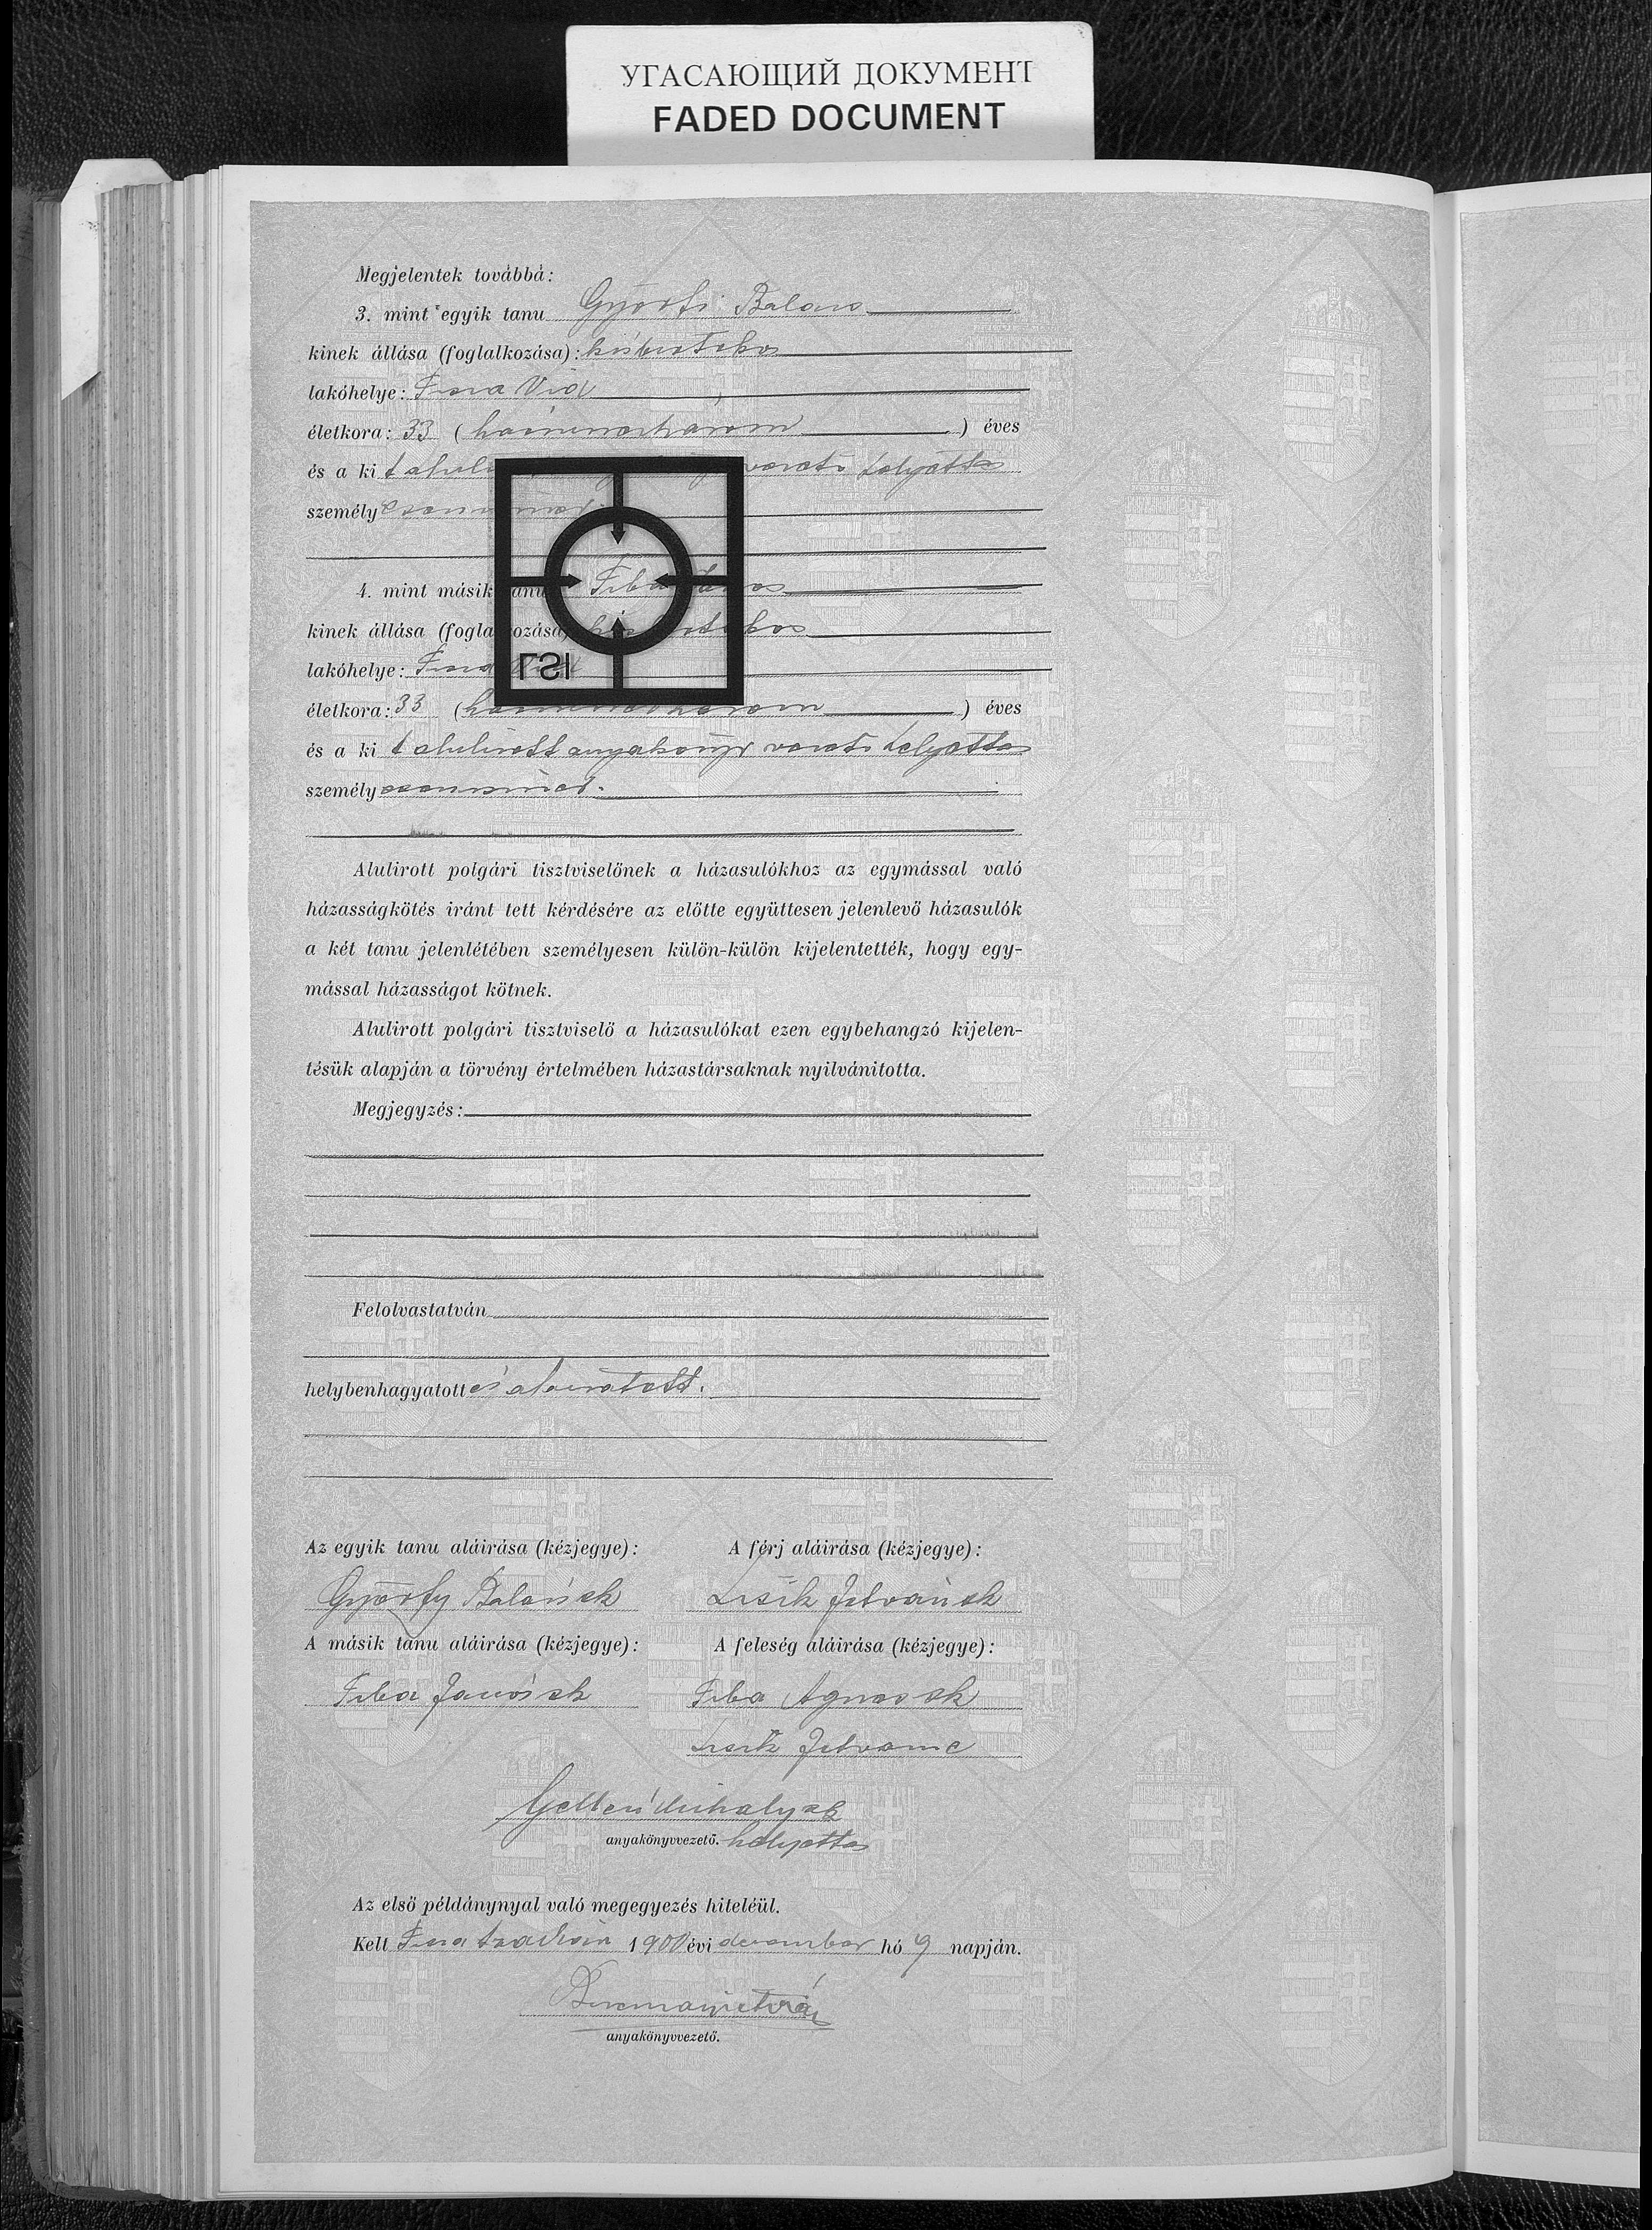 УГАСАЮЩИЙ ДОКУМЕНТ
FADED DOCUMENT
Megjelentek továbbá:
3. mint egyik tanu Győrfi Balázs
kinek állása (foglalkozása): kisbirtokos
lakóhelye: Tisza Vid
életkora: 33 (harminchárom) éves
és a ki t helyettes
személy
4. mint másik tanu Tiba
kinek állása (foglalkozása)
lakóhelye: Tisza
életkora: 33 (harminchárom) éves
és a ki t alulirott anyakönyv vezető helyettes
személy
LSI
Alulirott polgári tisztviselőnek a házasulókhoz az egymással való
házasságkötés iránt tett kérdésére az előtte együttesen jelenlevő házasulók
a két tanu jelenlétében személyesen külön-külön kijelentették, hogy egy-
mással házasságot kötnek.
Alulirott polgári tisztviselő a házasulókat ezen egybehangzó kijelen-
tésük alapján a törvény értelmében házastársaknak nyilvánitotta.
Megjegyzés:
Felolvastatván
helybenhagyatott és aláiratott.
Az egyik tanu aláirása (kézjegye): A férj aláirása (kézjegye):
Győrfy Balázs sk István sk
A másik tanu aláirása (kézjegye): A feleség aláirása (kézjegye):
Tiba János sk Tiba Ágnes sk
Istvanne
Gelléri Mihály sk
anyakönyvvezető. helyettes
Az első példánynyal való megegyezés hiteléül.
Kelt Tisza 1900 évi december hó 9 napján.
anyakönyvvezető.